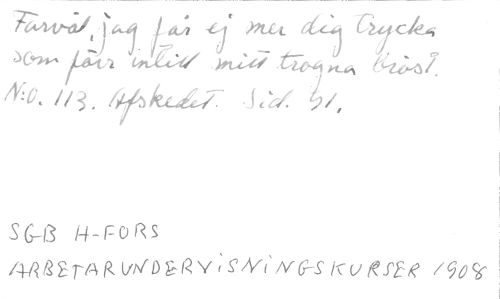 Farväl, jag får ej mer dig trycka
som förr intill mitt trogna bröst.
N:o. 113. Afskedet. Sid. 91.
SGB H-FORS
ARBETARUNDERVISNINGSKURSER 1908